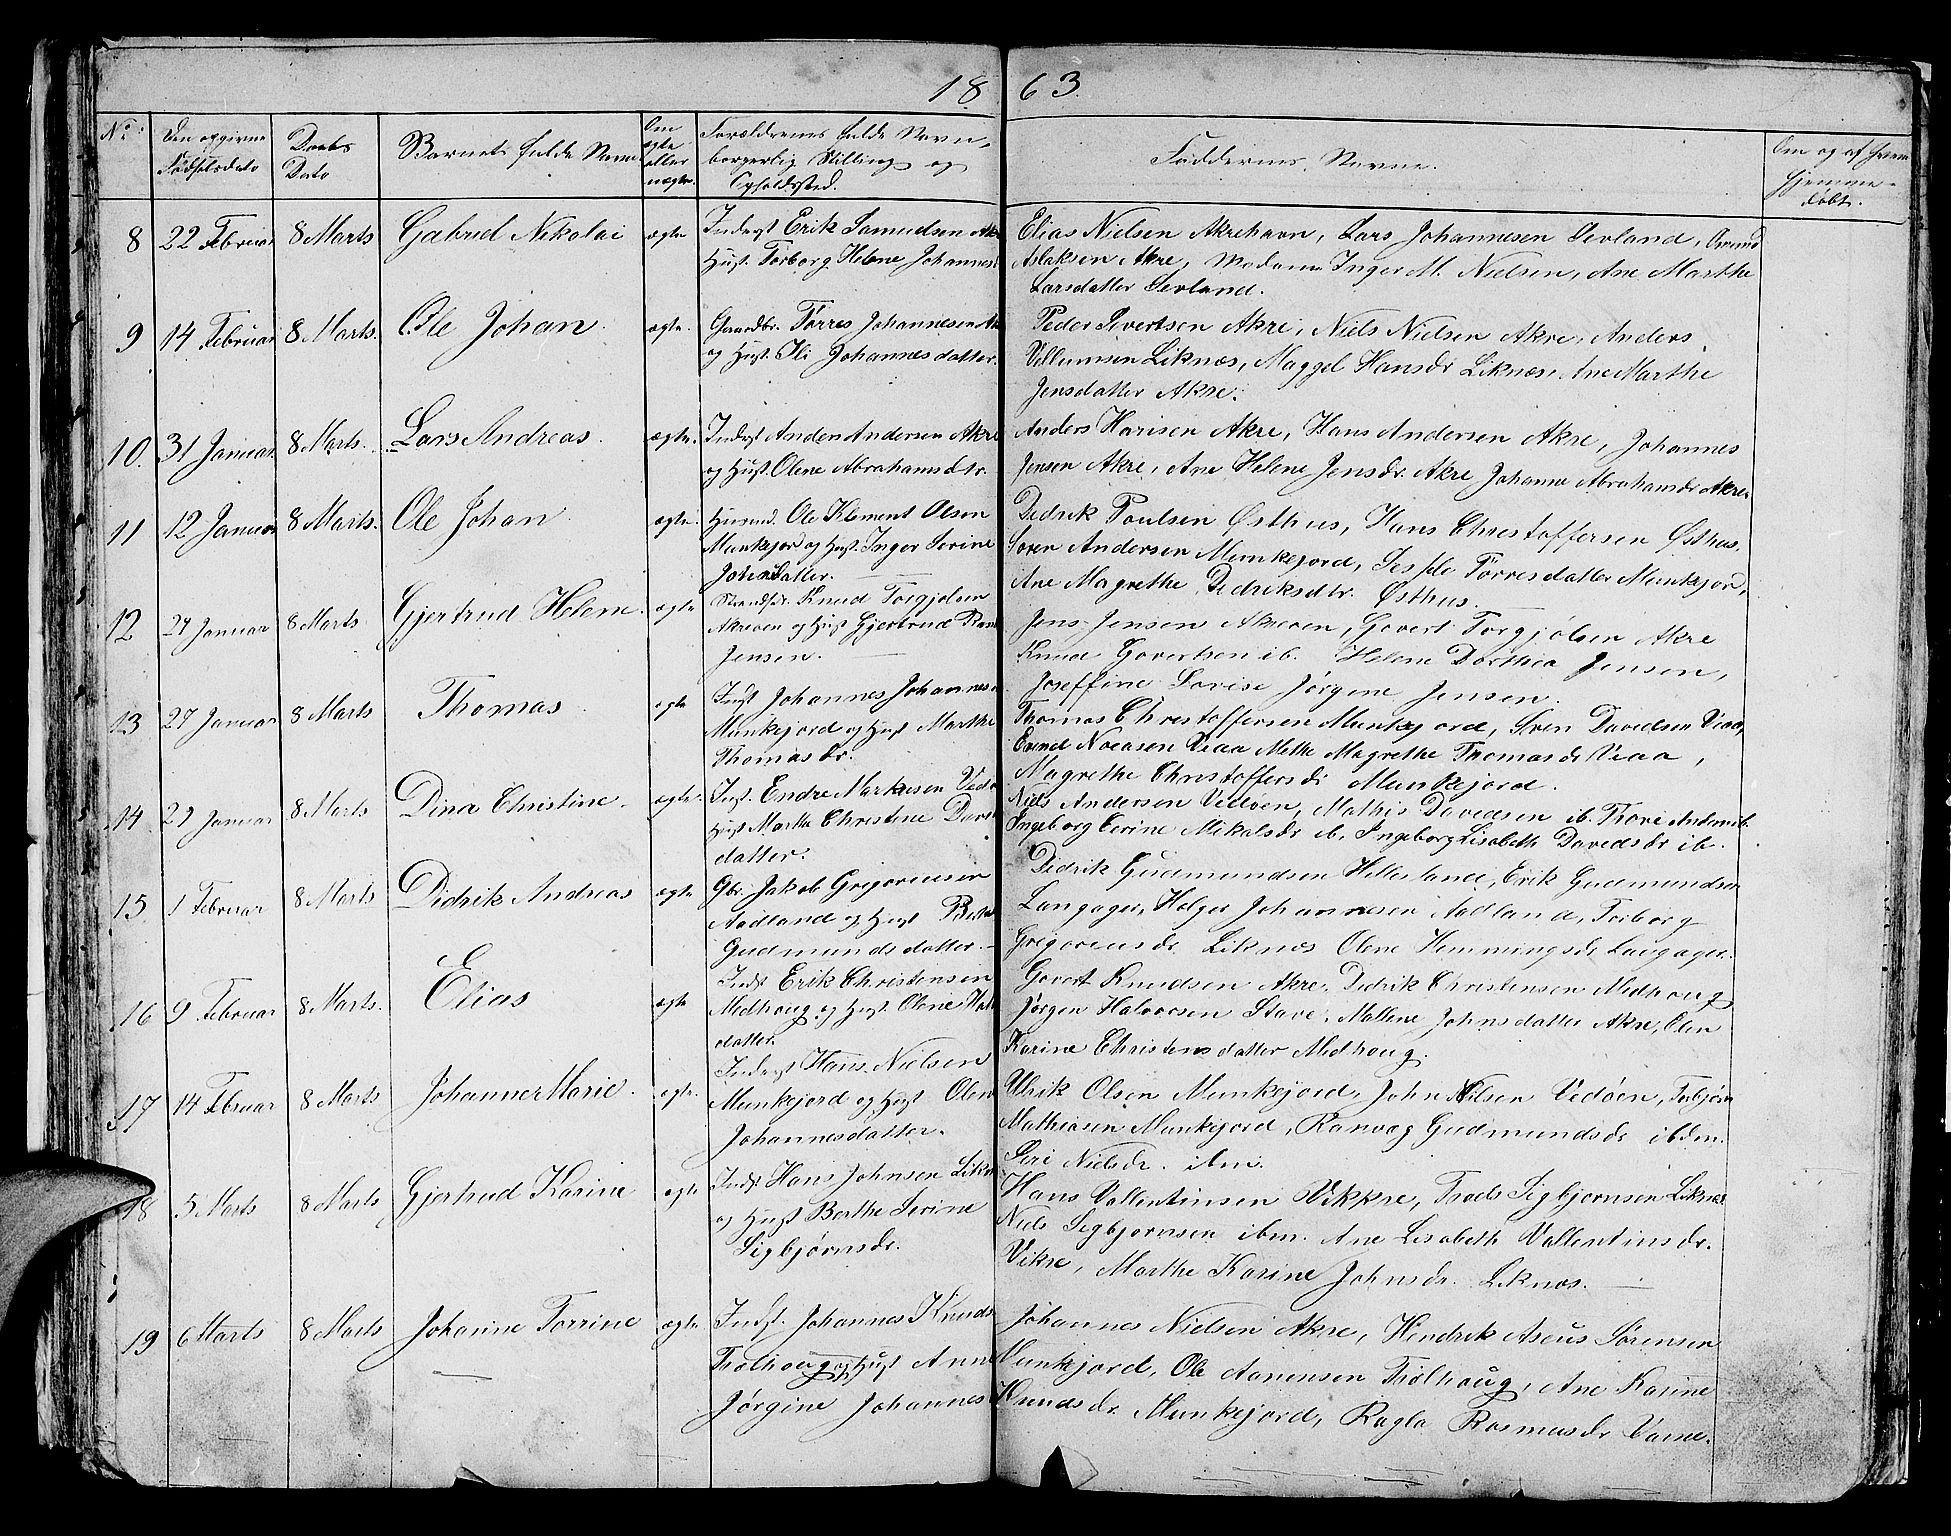 18 63
No. Den opgivne Fødselsdato
Daabs Dato
Barnets fulde Navn
Om ægte eller uægte.
Forældrenes fulde Navn, borgerlig Stilling og Opholdssted.
Faddernes Navne.
Om og af hvem hjemmedøbt.
8 22 Februar 8 Marts Gabriel Nikolai ægte
Indregt Erik Samuelsen Akre
Hust. Torborg Helene Johannes
Elias Nielsen Akrehavn, Lars Johannesen Sevland, Omund
Aslaksen Akre, Madame Inger M. Nielsen, Ane Marthe
Larsdatter Sevland.
9 14 Februar 8 Marts. Ole Johan ægte.
Gaardbr. Tørres Johannesen
og Hust. Ili Johannesdatter.
Peder Sivertsen Akre, Niels Nielsen Akre, Anders
Villumsen Liknæs, Maggel Hansdr Liknæs, Ane Marthe
Jensdatter Akre.
10. 31 Januar. 8 Marts. Lars Andreas. ægte.
Indregt Anders Andersen Akre
og Hust. Olene Abrahamsdtr.
Anders Hansen Akre, Hans Andersen Akre, Johannes
Jensen Akre, Ane Helene Jensdr. Akre Johanne Abrahamsdr Akre.
11 12 Januar 8 Marts. Ole Johan ægte.
Husmd. Ole Klement Olsen
Munkejord og Hust. Inger Serine
datter.
Didrik Poulsen Østhus, Hans Christoffersen Østhus,
Soren Andersen Munkejord, Tørresdatter Munkejord,
Ane Magrethe Didriksdtr. Østhus.
12 27 Januar 8 Marts. Gjertrud Helene. ægte
Strandsdr. Knud Torgjelsen
Akreøen og Hust Gjertrud
Jensen.
Jens Jensen Akreøen, Govert Torgjølsen Akre
Knud Govertsen ib. Helene Dorthea Jensen,
Joseffine Lovise Jørgene Jensen.
13 27 Januar 8 Marts Thomas ægte
Indst Johannes Johannes
Munkejord og Hust Marthe
Thomasdr.
Thomas Christoffersen Munkejord, Sven Davidsen Viaa,
Evind Noeasen Viaa Mette Magrethe Thomasdr Viaa,
Magrethe Christoffersdr Munkejord.
14. 29 Januar 8 Marts Dina Christine. ægte.
Inst. Endre Markusen
Hust Marthe Christine
datter.
Niels Andersen Vedøen, Mathis Davidsen ib. Tore
Ingeborg Serine Mikalsdr ib, Ingeborg Lisabeth Davidsdr ib.
15. 1 Februar 8 Marts Didrik Andreas ægte
Gbr. Jakob Grigoriusen
Aadland og Hust
Gudmundsdatter.
Didrik Gudmundsen Hillesland, Erik Gudmundsen
Langager, Holger Johannesen Aadland, Torborg
Grigoriusdr. Liknæs Olene Hemmingsdr Langager.
16 9 Februar 8 Marts. Elias ægte
Indst Erik Christensen
Medhoug og Hust. Olene
datter.
Govert Knudsen Akre, Didrik Christensen Medhoug
Jørgen Halvorsen Stave, Mallene Johnsdatter Akre, Olen
Karine Christensdatter Medhoug.
17 14 Februar 8 Marts Johanne Marie. ægte.
Indregt Hans Nielsen
Munkejord og Hust Olene
Johannesdatter.
Ulrik Olsen Munkejord, John Nilsen Vedøen, Torbjørn
Mathiasen Munkejord, Ranvog Gudmundsdr ibdm.
Siri Nielsdr. ibm.
18 5 Marts 8 Marts Gjertrud Karine ægte
Indst Hans Johnsen
og Hust Berthe Serine
Sigbjørnsdr.
Hans Vallentinsen Vikkre, Trods Sigbjornsen Liknæs
Niels Sigbjornsen ibm. Ane Lisabeth Vallentinsdr.
Vikre, Marthe Karine Johnsdr. Liknæs.
19 6 Marts 8 Marts Johanne Torrine ægte
Indst. Johannes Knuds
Trolhoug og Hust Anne
Jørgine Johannes
Johannes Nielsen Akre, Hendrik Aseus Sørensen
Munkjord, Ole Aanensen Trølhoug, Ane Karine
Knudsdr. Munkejord, Ragla Rasmusdr